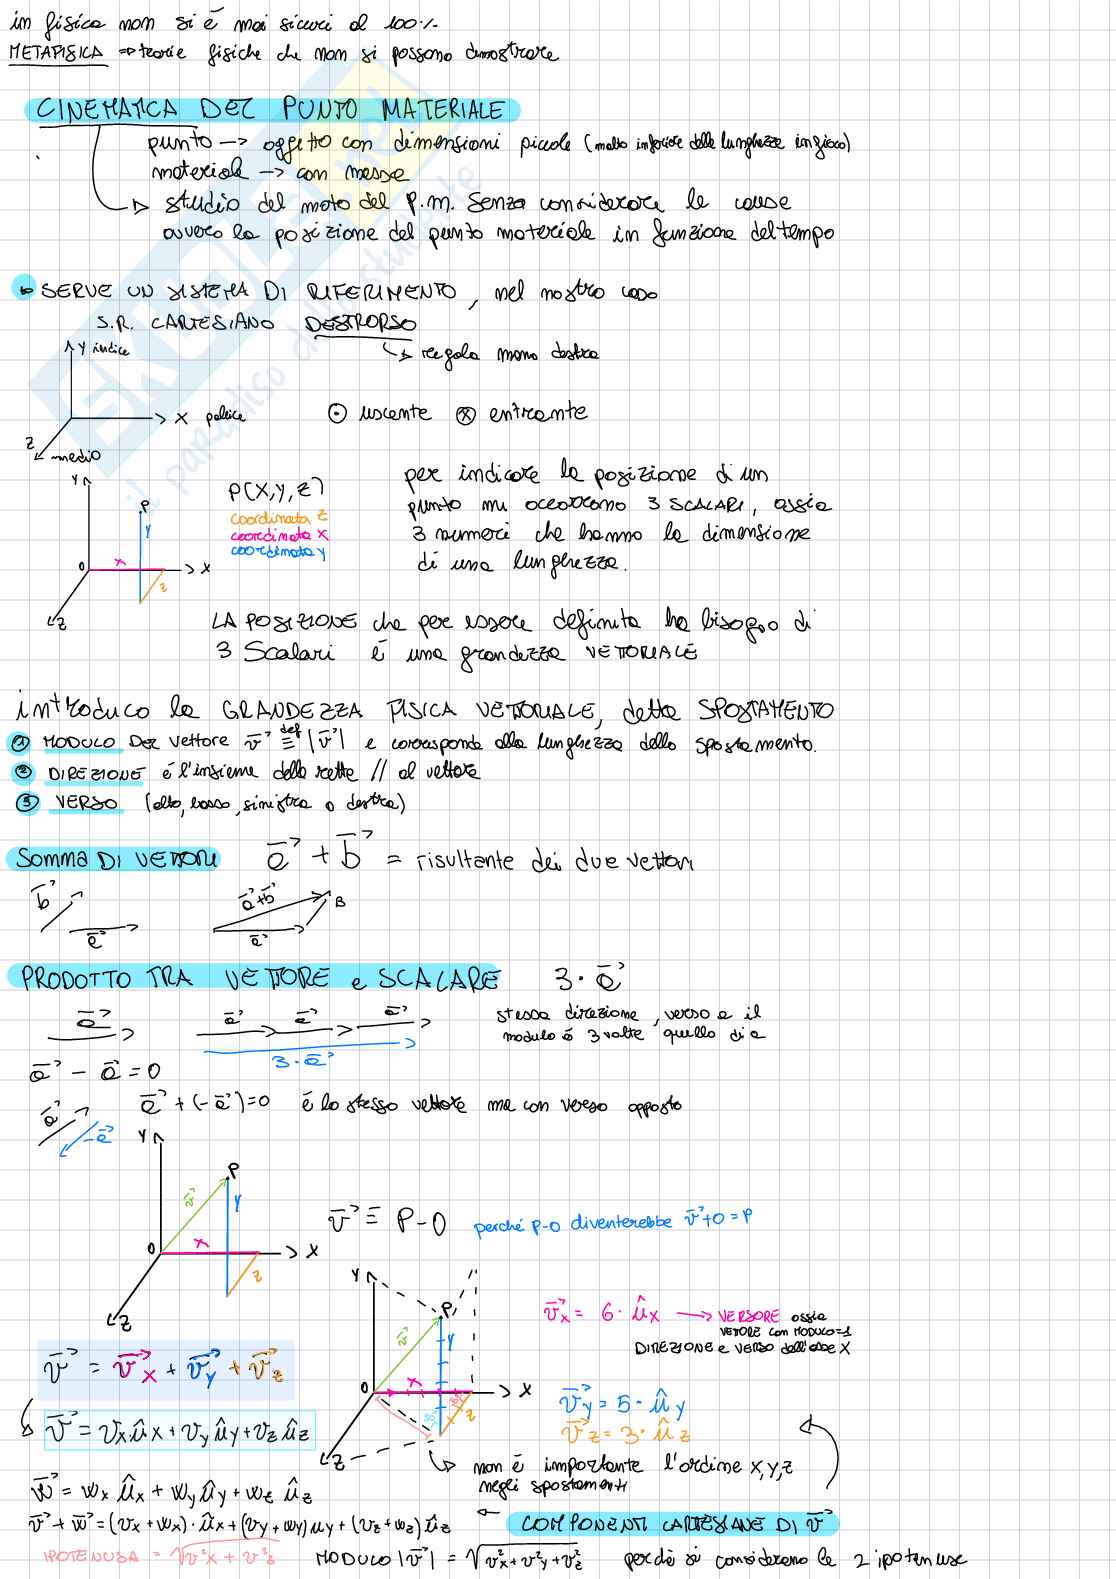 in fisica non si è mai sicuri al 100%
METAFISICA => teorie fisiche che non si possono dimostrare
CINEMATICA DEL PUNTO MATERIALE
punto -> oggetto con dimensioni piccole (molto inferiore delle lunghezze in gioco)
materiale -> con massa
-> studio del moto del P.M. senza considerare le cause
ovvero la posizione del punto materiale in funzione del tempo
SERVE UN SISTEMA DI RIFERIMENTO, nel nostro caso
S.R. CARTESIANO DESTRORSO
-> regola mano destra
Y indice
X pollice
Z medio
⊙ uscente ⊗ entrante
Y
P
Y
O
X
X
Z
Z
P(X,Y,Z)
coordinata Z
coordinata X
coordinata Y
per indicare la posizione di un
punto mi occorrono 3 SCALARI, ossia
3 numeri che hanno la dimensione
di una lunghezza.
LA POSIZIONE che per essere definita ha bisogno di
3 Scalari è una grandezza VETTORIALE
introduco la GRANDEZZA FISICA VETTORIALE, detta SPOSTAMENTO
① MODULO DEL vettore v⃗ ≡def |v⃗| e corrisponde alla lunghezza dello spostamento.
② DIREZIONE è l'insieme delle rette // al vettore
③ VERSO (alto, basso, sinistra o destra)
SOMMA DI VETTORI a⃗ + b⃗ = risultante dei due vettori
b⃗
a⃗
a⃗+b⃗
B
a⃗
PRODOTTO TRA VETTORE e SCALARE 3·a⃗
a⃗
a⃗ a⃗ a⃗
3·a⃗
stessa direzione, verso e il
modulo è 3 volte quello di a
a⃗ - a⃗ = 0
a⃗ + (-a⃗) = 0 è lo stesso vettore ma con verso opposto
a⃗
-a⃗
Y
P
v⃗
Y
O
X
X
Z
Z
v⃗ ≡ P-O perché P-O diventerebbe v⃗+O=P
Y
P
v⃗
Y
O
X
X
Z
Z
v⃗x = 6·ûx -> VERSORE ossia
VETTORE con MODULO=1
DIREZIONE e VERSO dell'asse X
v⃗y = 5·ûy
v⃗z = 3·ûz
v⃗ = v⃗x + v⃗y + v⃗z
v⃗ = vxûx + vyûy + vzûz
-> non è importante l'ordine X,Y,Z
negli spostamenti
w⃗ = wxûx + wyûy + wzûz
v⃗ + w⃗ = (vx+wx)·ûx + (vy+wy)ûy + (vz+wz)ûz
<- COMPONENTI CARTESIANE DI v⃗
IPOTENUSA = √(v²x + v²z)
MODULO |v⃗| = √(v²x + v²y + v²z) perché si considerano le 2 ipotenuse